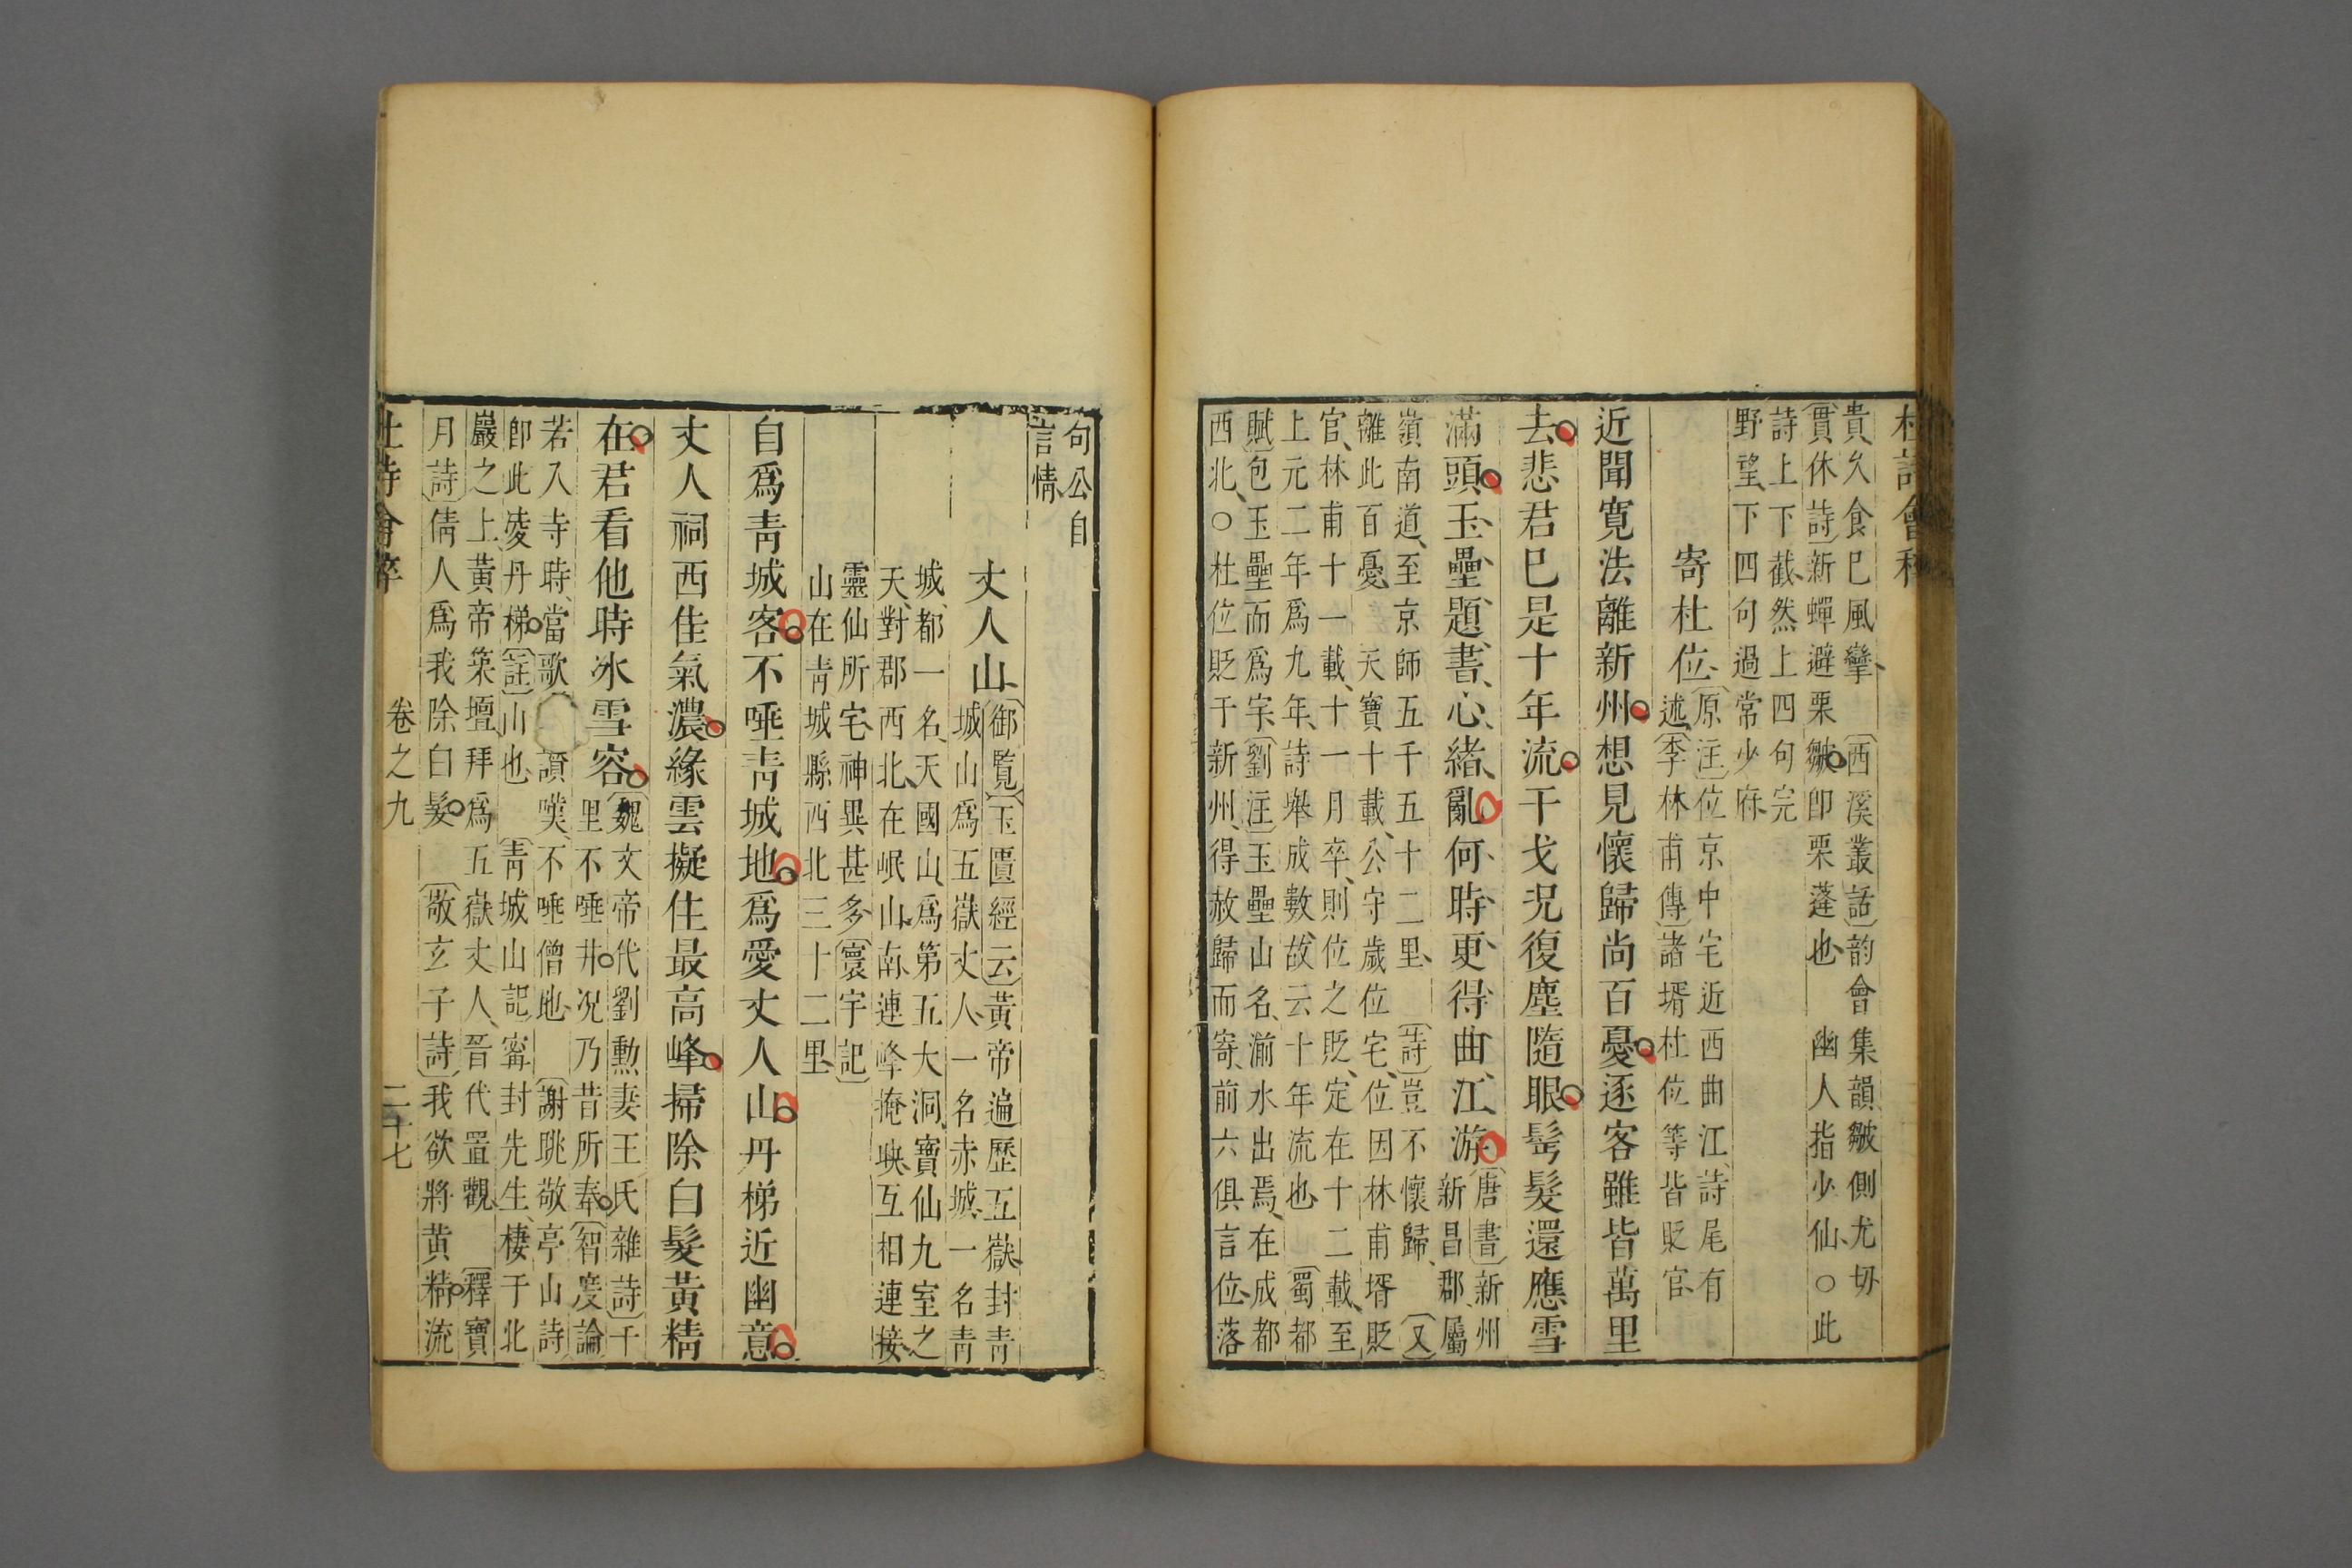 杜詩會稡
貴久食巳風攣、〔西溪叢話〕韵會集韻皴側尤切
〔貫休詩〕新蟬避栗皴卽栗蓬也、幽人指少仙、○此
詩上下截然上四句完
野望、下四句過常少府
寄杜位、〔原注〕位京中宅近西曲江、詩尾有
述、〔李林甫傳〕諸壻杜位等皆貶官、
近聞寛法離新州想見懷歸尚百憂逐客雖皆萬里
去悲君巳是十年流干戈況復塵隨眼鬂髮還應雪
滿頭玉壘題書心緒亂何時更得曲江游〔唐書〕新州
新昌郡、屬
嶺南道、至京師五千五十二里、〔詩〕豈不懷歸、〔又〕
離此百憂、天寶十載、公守歲位宅、位因林甫壻貶
官、林甫十一載、十一月卒、則位之貶、定在十二載、至
上元二年爲九年、詩舉成數、故云十年流也、〔蜀都
賦〕包玉壘而爲宇、〔劉注〕玉壘山名、湔水出焉、在成都
西北、○杜位貶于新州、得赦歸而寄、前六俱言位、落
句公自
言情、
丈人山、〔御覧〕〔玉匱經云〕黃帝遍歷五嶽、封靑
城山爲五嶽丈人、一名赤城、一名靑
城、都一名、天國山、爲第五大洞、寶仙九室之
天、對郡西北、在岷山、南、連峰掩映、互相連接、
靈仙所宅、神異甚多、〔寰宇記〕
山在靑城縣西北三十二里、
自爲靑城客不唾靑城地爲愛丈人山丹梯近幽意
丈人祠西佳氣濃緣雲擬住最高峰掃除白髮黃精
在君看他時冰雪容〔魏文帝代劉勲妻王氏雜詩〕千
里不唾井況乃昔所奉〔智度論〕
若入寺時、當歌讚嘆、不唾僧地、〔謝眺敬亭山詩〕
卽此淩丹梯〔註〕山也、〔靑城山記〕甯封先生、棲于北
巖之上、黃帝築壇、拜爲五嶽丈人、晉代置觀、〔釋寶
月詩〕倩人爲我除白髮〔敬玄子詩〕我欲將黃精流
杜詩會稡　卷之九　二十七